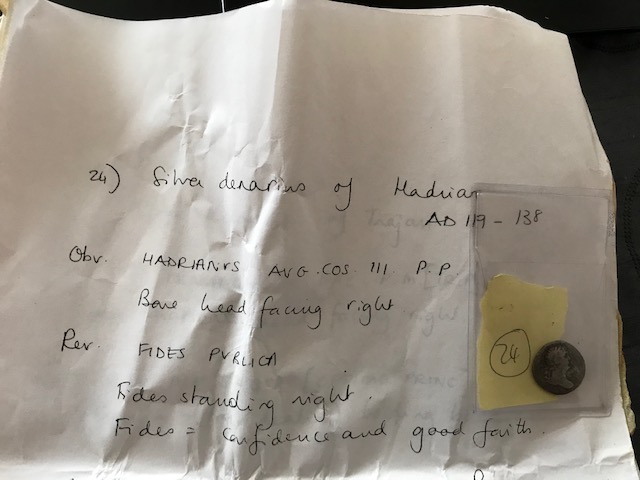 24) Silver denarius of Hadrian
AD 119 - 138
Obv. HADRIANVS AVG. COS. III P.P
Bare head facing right
Rev. FIDES PVBLICA
Fides standing right.
Fides = Confidence and good faith.
24